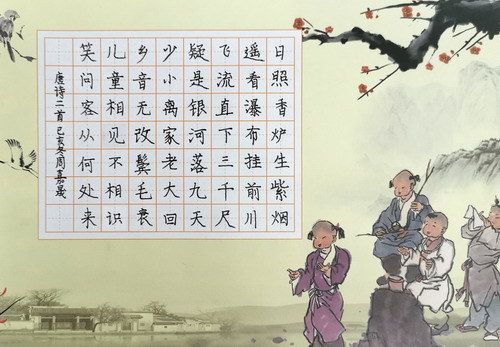 日照香炉生紫烟
遥看瀑布挂前川
飞流直下三千尺
疑是银河落九天
少小离家老大回
乡音无改鬓毛衰
儿童相见不相识
笑问客从何处来
唐诗二首 己亥冬周嘉晟